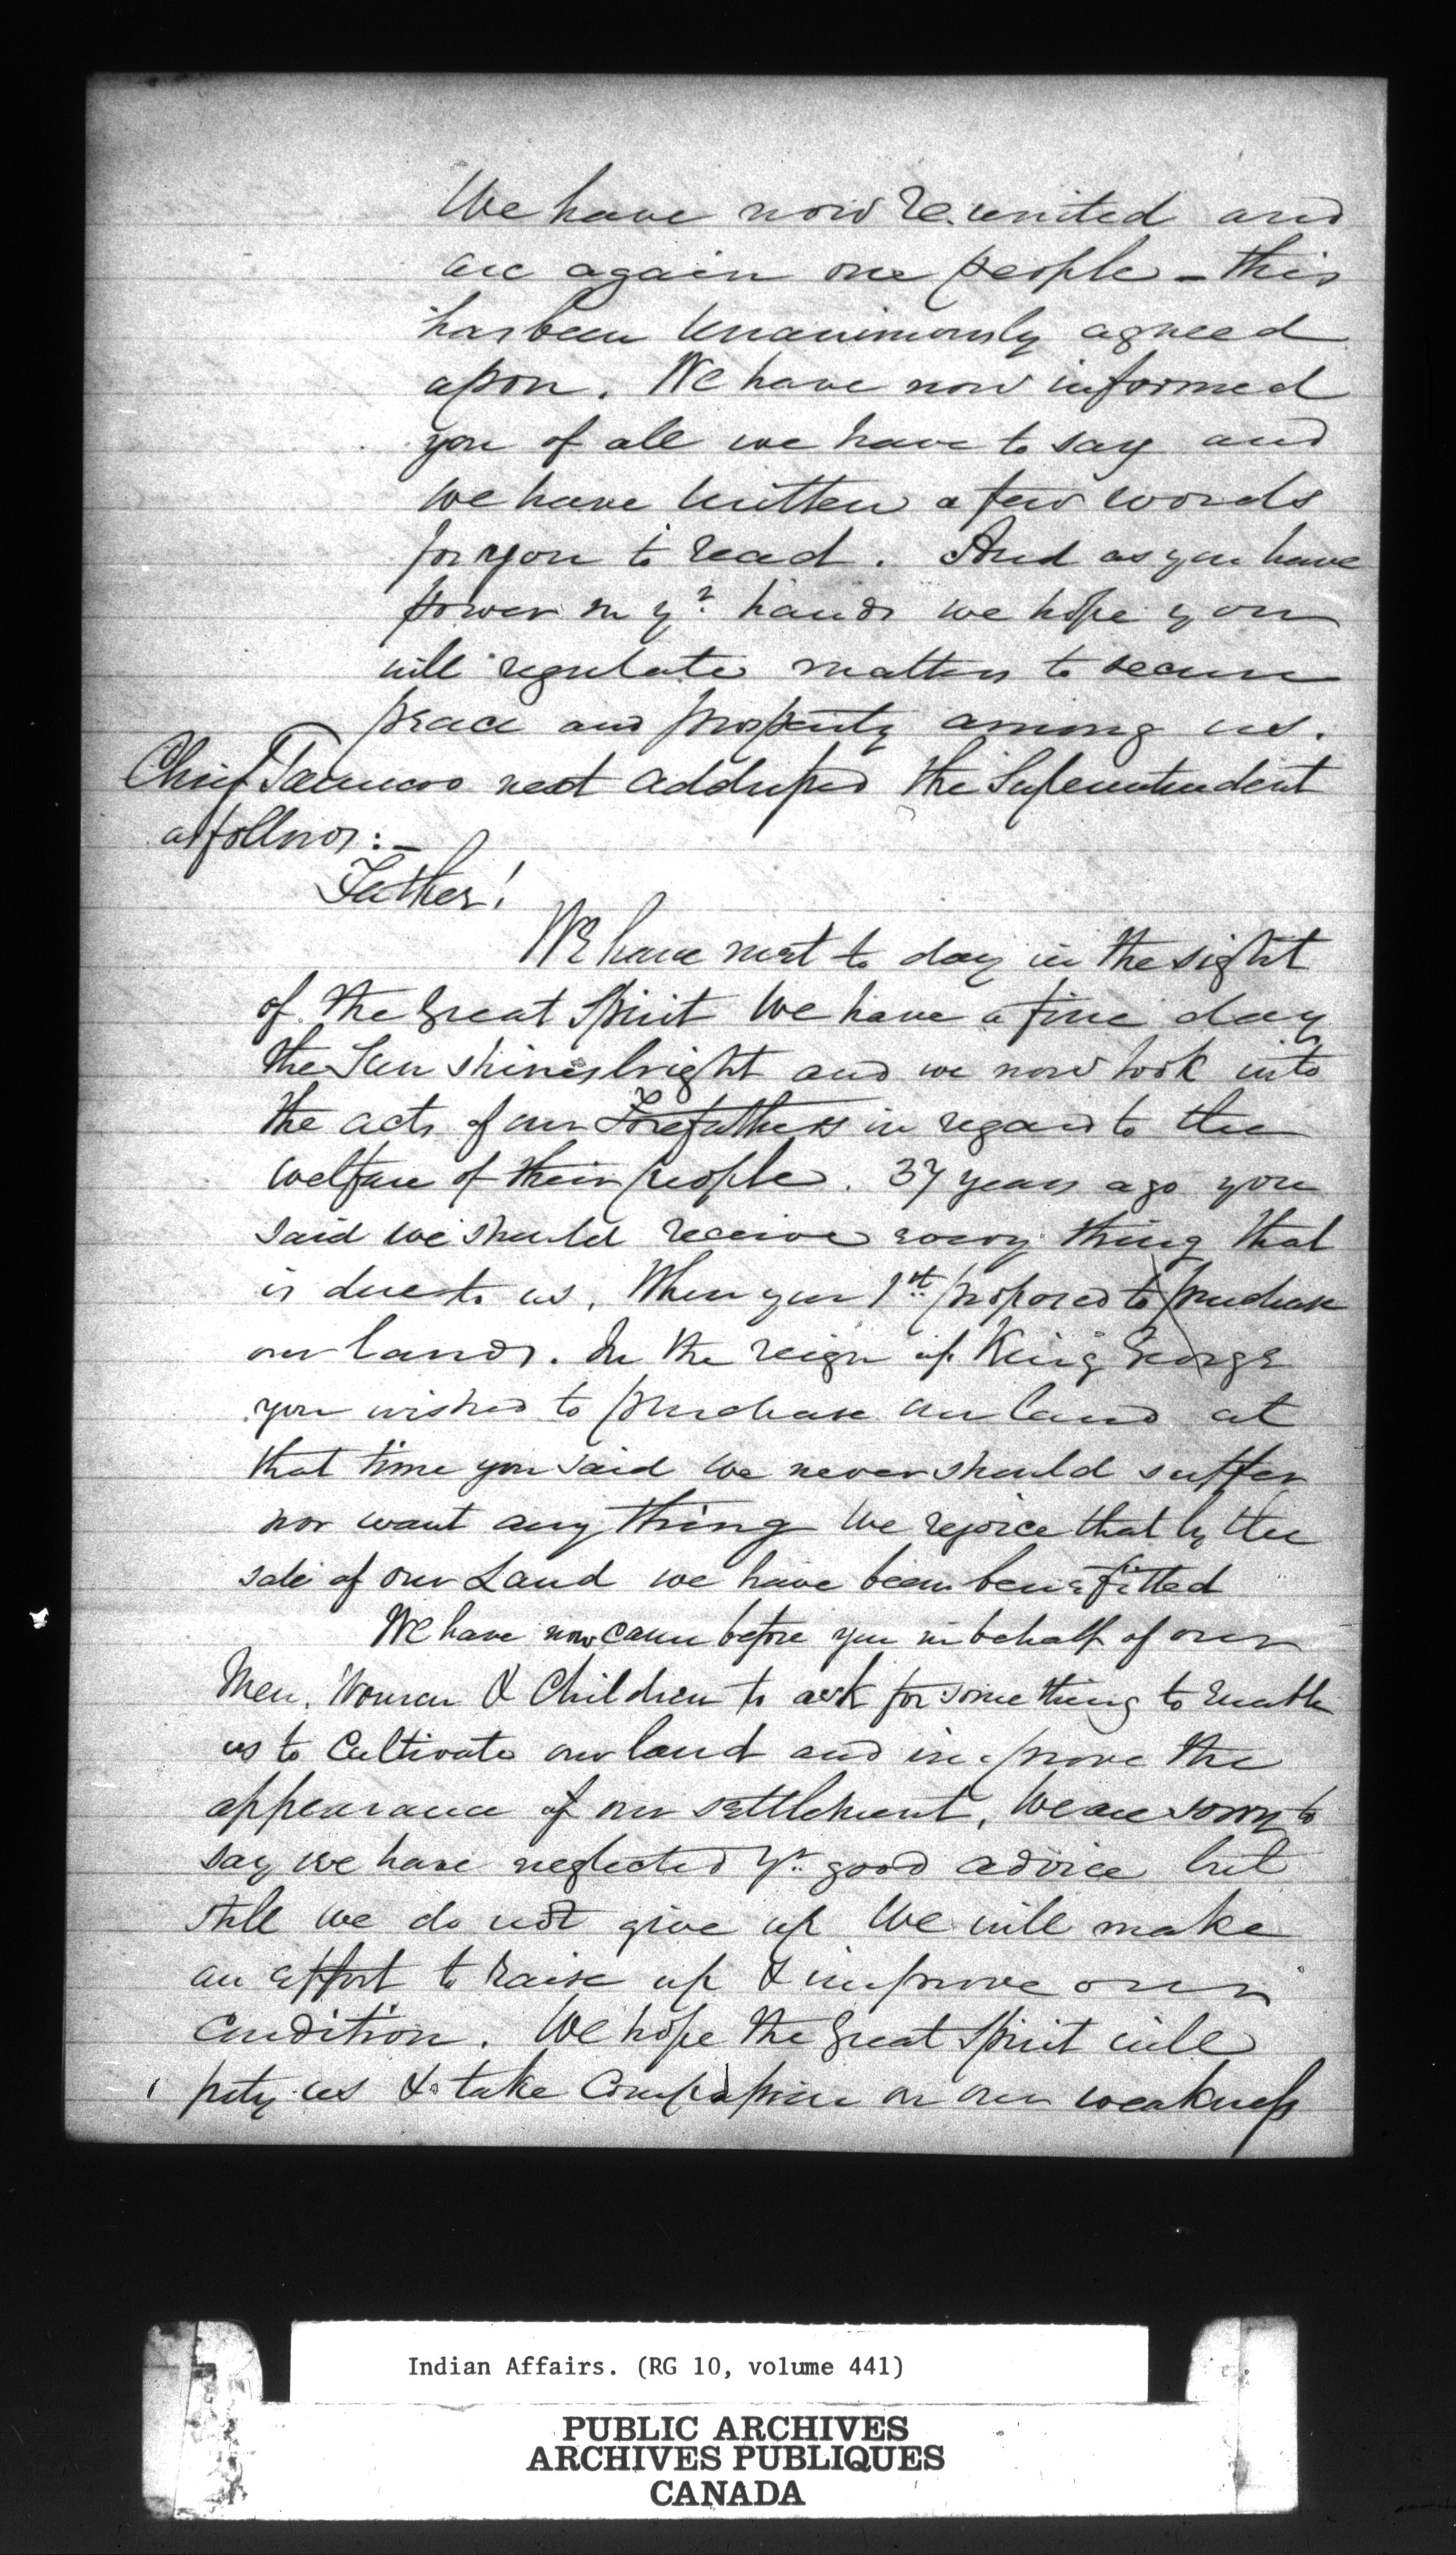 We have now re.united and
are again one people _ this
has been Unanimously agreed
upon. We have now informed
you of all we have to say and
We have written a few words
for you to read. And as you have
power in yr. hands we hope you
will regulate matters to secure
peace and prosperity among us.
Chief next addressed the Superintendent
as follows:_
Father!
We have met to day in the sight
of the Great Spirit We have a fine day
the Sun shines bright and we now look into
the acts of our Forefathers in regard to the
welfare of their people. 37 years ago you
said we should receive every thing that
is due to us, When you 1st. proposed to purchase
our lands. In the reign of King George
you wished to purchase our land at
that time you said we never should suffer
nor want any thing We rejoice that by the
sale of our Land we have been benefitted
We have now came before you in behalf of our
Men, Women & Children to ask for some thing to enable
us to Cultivate our land and improve the
appearance of our settlement, We are sorry to
say we have neglected yr. good advice but
still we do not give up We will make
an effort to raise up & improve our
Condition. We hope the Great Spirit will
pity us & take Compassion on our weakness
Indian Affairs. (RG 10, volume 441)
PUBLIC ARCHIVES
ARCHIVES PUBLIQUES
CANADA